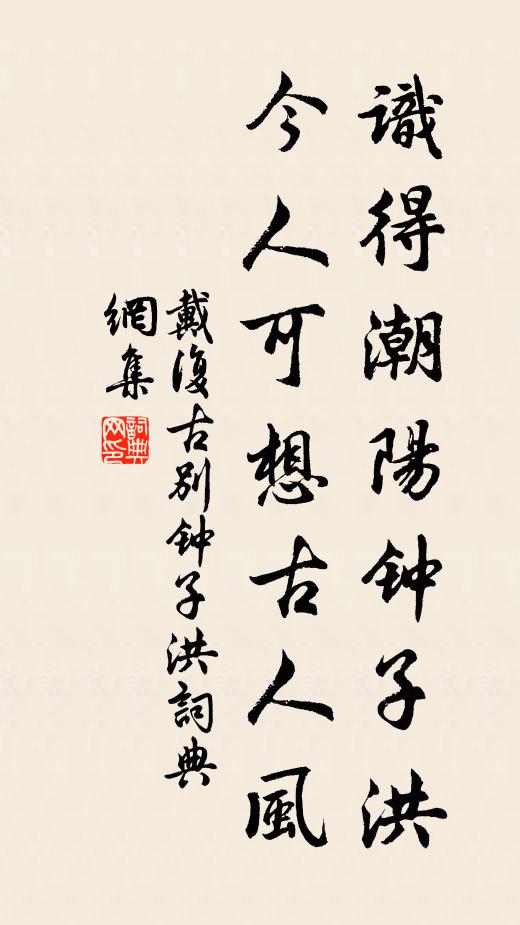 識得潮陽钟子洪
今人可想古人風
戴復古别钟子洪詞典
網集
詞典网印